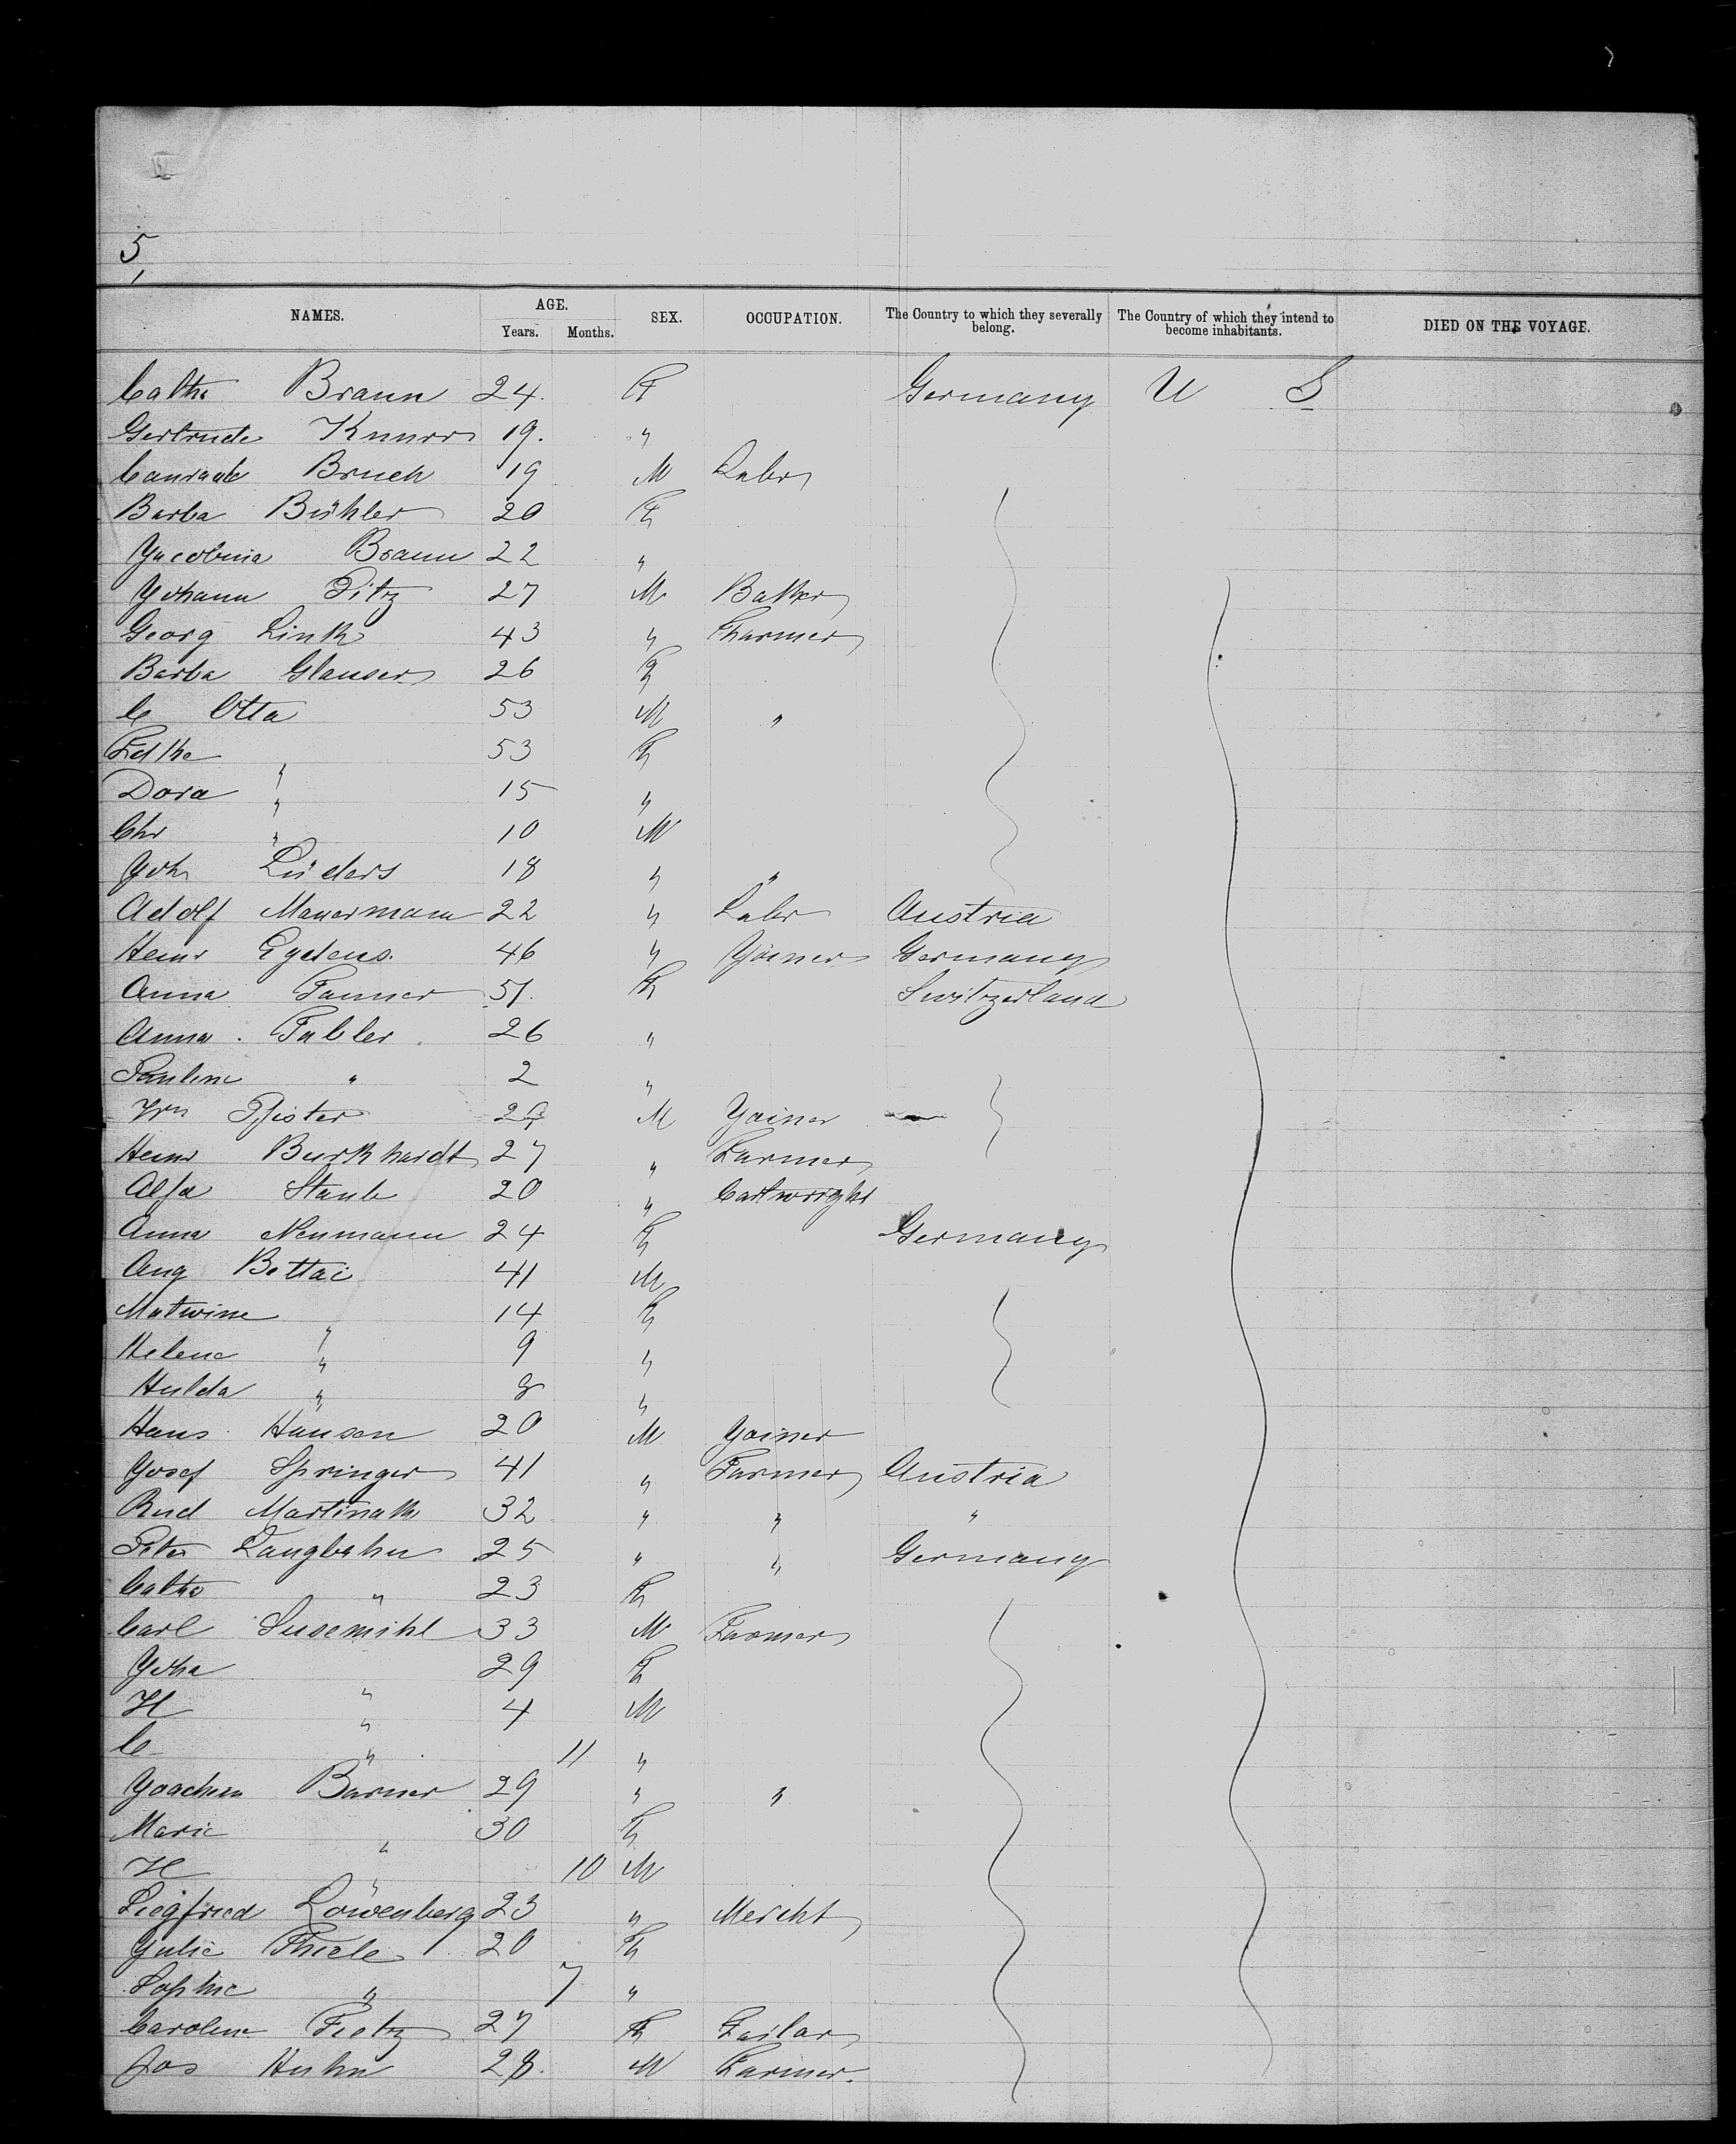 5
NAMES. AGE. Years. Months. SEX. OCCUPATION. The Country to which they severally belong. The Country of which they intend to become inhabitants. DIED ON THE VOYAGE.
Cathe Braun 24. F Germany U S
Gertrude Knurr 19. "
Bruch 19 M Labr
Barba Bühler 20 F
Yacobina Braun 22 "
Yohann Pitz 27 M Baker
Georg Link 43 " Farmer
Barba Glauser 26 F
C Otta 53 M "
53 F
Dora " 15 "
Chr " 10 M
Yoh Lüders 18 " "
Adolf Mauermann 22 " Labr Austria
Heinr Eydens. 46 " Yoiner Germany
Anna Tanner 51. F Switzerland
Anna Tabler 26 "
Pauline " 2 "
Wm Pfister M Yoiner
Heinr Burkhardt 27 " Farmer
Staub 20 " Cartwright
Anna Neumann 24 F Germany
Aug Bettac 41 M
Matwine " 14 F
Helene " 9 "
Hulda " 8 "
Hans Hansen 20 M Yoiner
Yosef Springer 41 " Farmer Austria
Rud Martinak 32 " " "
Peter Langbehn 25 " " Germany
Cathe " 23 F
Carl Susemihl 33 M Farmer
Yoha " 29 F
H " 4 M
C " 11 "
Yoachim Barner 29 " "
Marie " 30 F
H " 10 M
Siegfried Löwenberg 23 " Mercht
Yulie Thiele 20 F
Sophie " 7 "
Caroline Tietz 27 F Tailor
Jos Huhn 28. M Farmer.